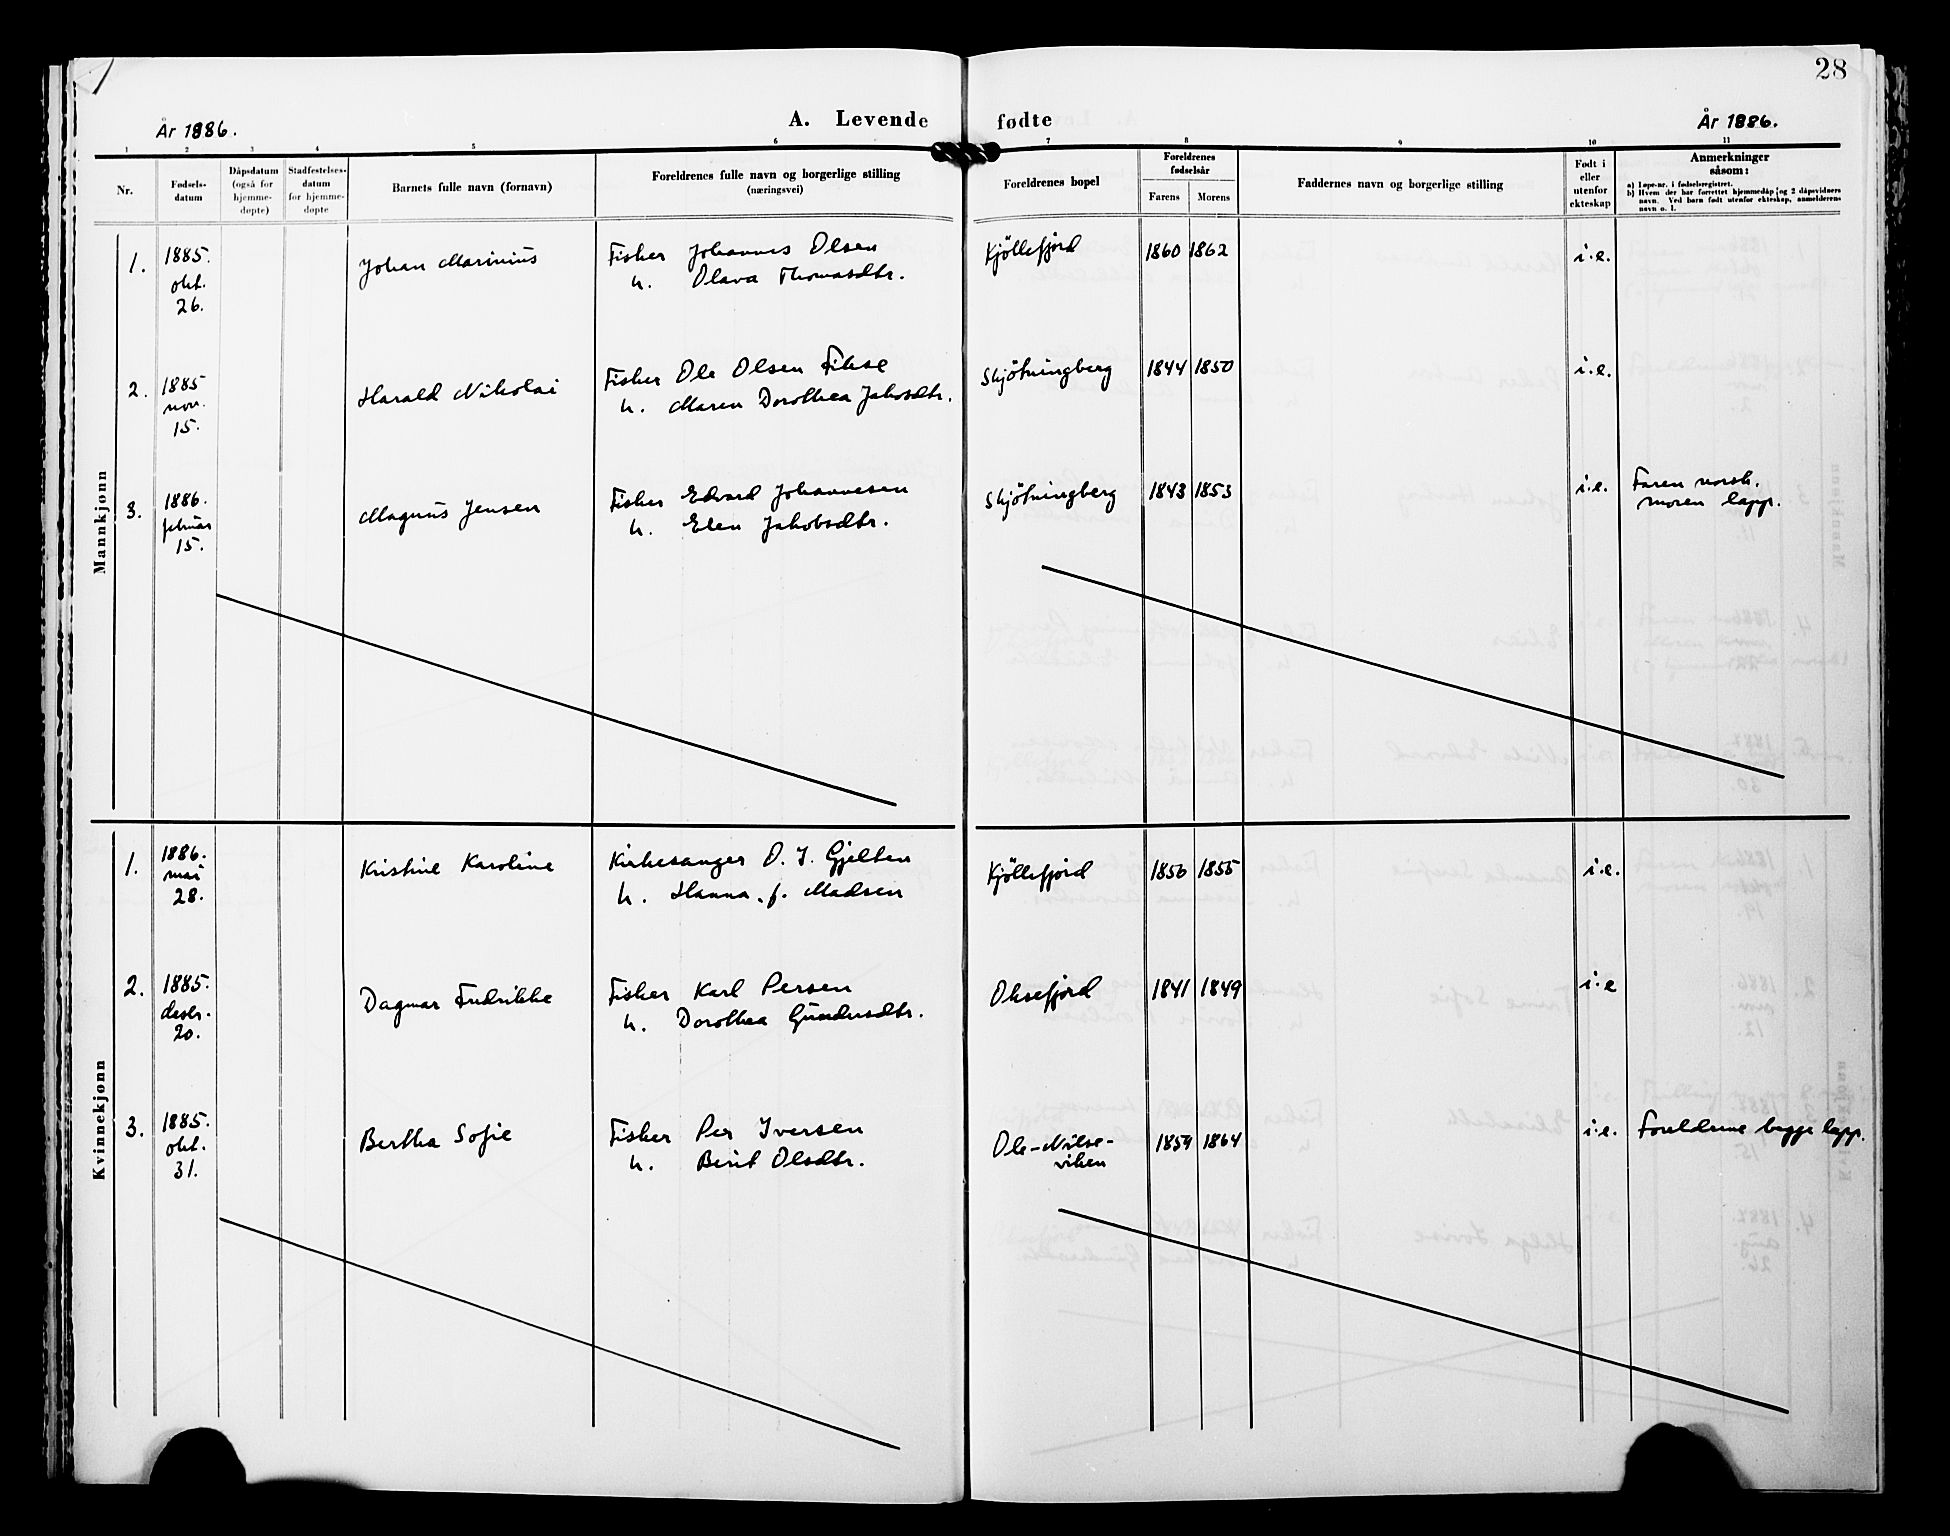 28
År 1886.
A. Levende fødte
År 1886.
1 2 3 4 5 6 7 8 9 10 11
Nr.
Fødsels-
datum
Dåpsdatum
(også for
hjemme-
døpte)
Stadfestelses-
datum
for hjemme-
døpte
Barnets fulle navn (fornavn)
Foreldrenes fulle navn og borgerlige stilling
(næringsvei)
Foreldrenes bopel
Foreldrenes
fødselsår
Farens Morens
Faddernes navn og borgerlige stilling
Født i
eller
utenfor
ekteskap
Anmerkninger
såsom:
a) Løpe-nr. i fødselsregistret.
b) Hvem der har forrettet hjemmedåp og 2 dåpsvidners
navn. Ved barn født utenfor ekteskap, anmelderens
navn o. l.
Mannkjønn
1. 1885. okt. 26. Johan Marinius Fisker Johannes Olsen Kjöllefjord 1860 1862 i.e.
h. Olava Thomasdtr.
2. 1885 nov. 15. Harald Nikolai Fisker Ole Olsen Fikse Skjötningberg 1844 1850 i.e.
h. Maren Dorothea Jakosdtr.
3. 1886. februar 15. Magnus Jensen Fisker Edvard Johannesen Skjötningberg 1843 1853 i.e. Faren norsk.
h. Elen Jakobsdtr. moren lapp.
Kvinnekjønn
1. 1886. mai 28. Kristine Karoline Kirkesanger O. J. Gjelten Kjöllefjord 1856 1855 i.e.
h. Hanna. f. Madsen
2. 1885. desbr. 20. Dagmar Fredrikke Fisker Karl Persen Oksefjord 1841 1849 i.e
h. Dorothea Gundersdtr.
3. 1885. okt. 31. Bertha Sofie Fisker Per Iversen Ole-Nilse- 1859 1864 i.e. Foreldrene begge lapp.
h. Berit Olsdtr. viken